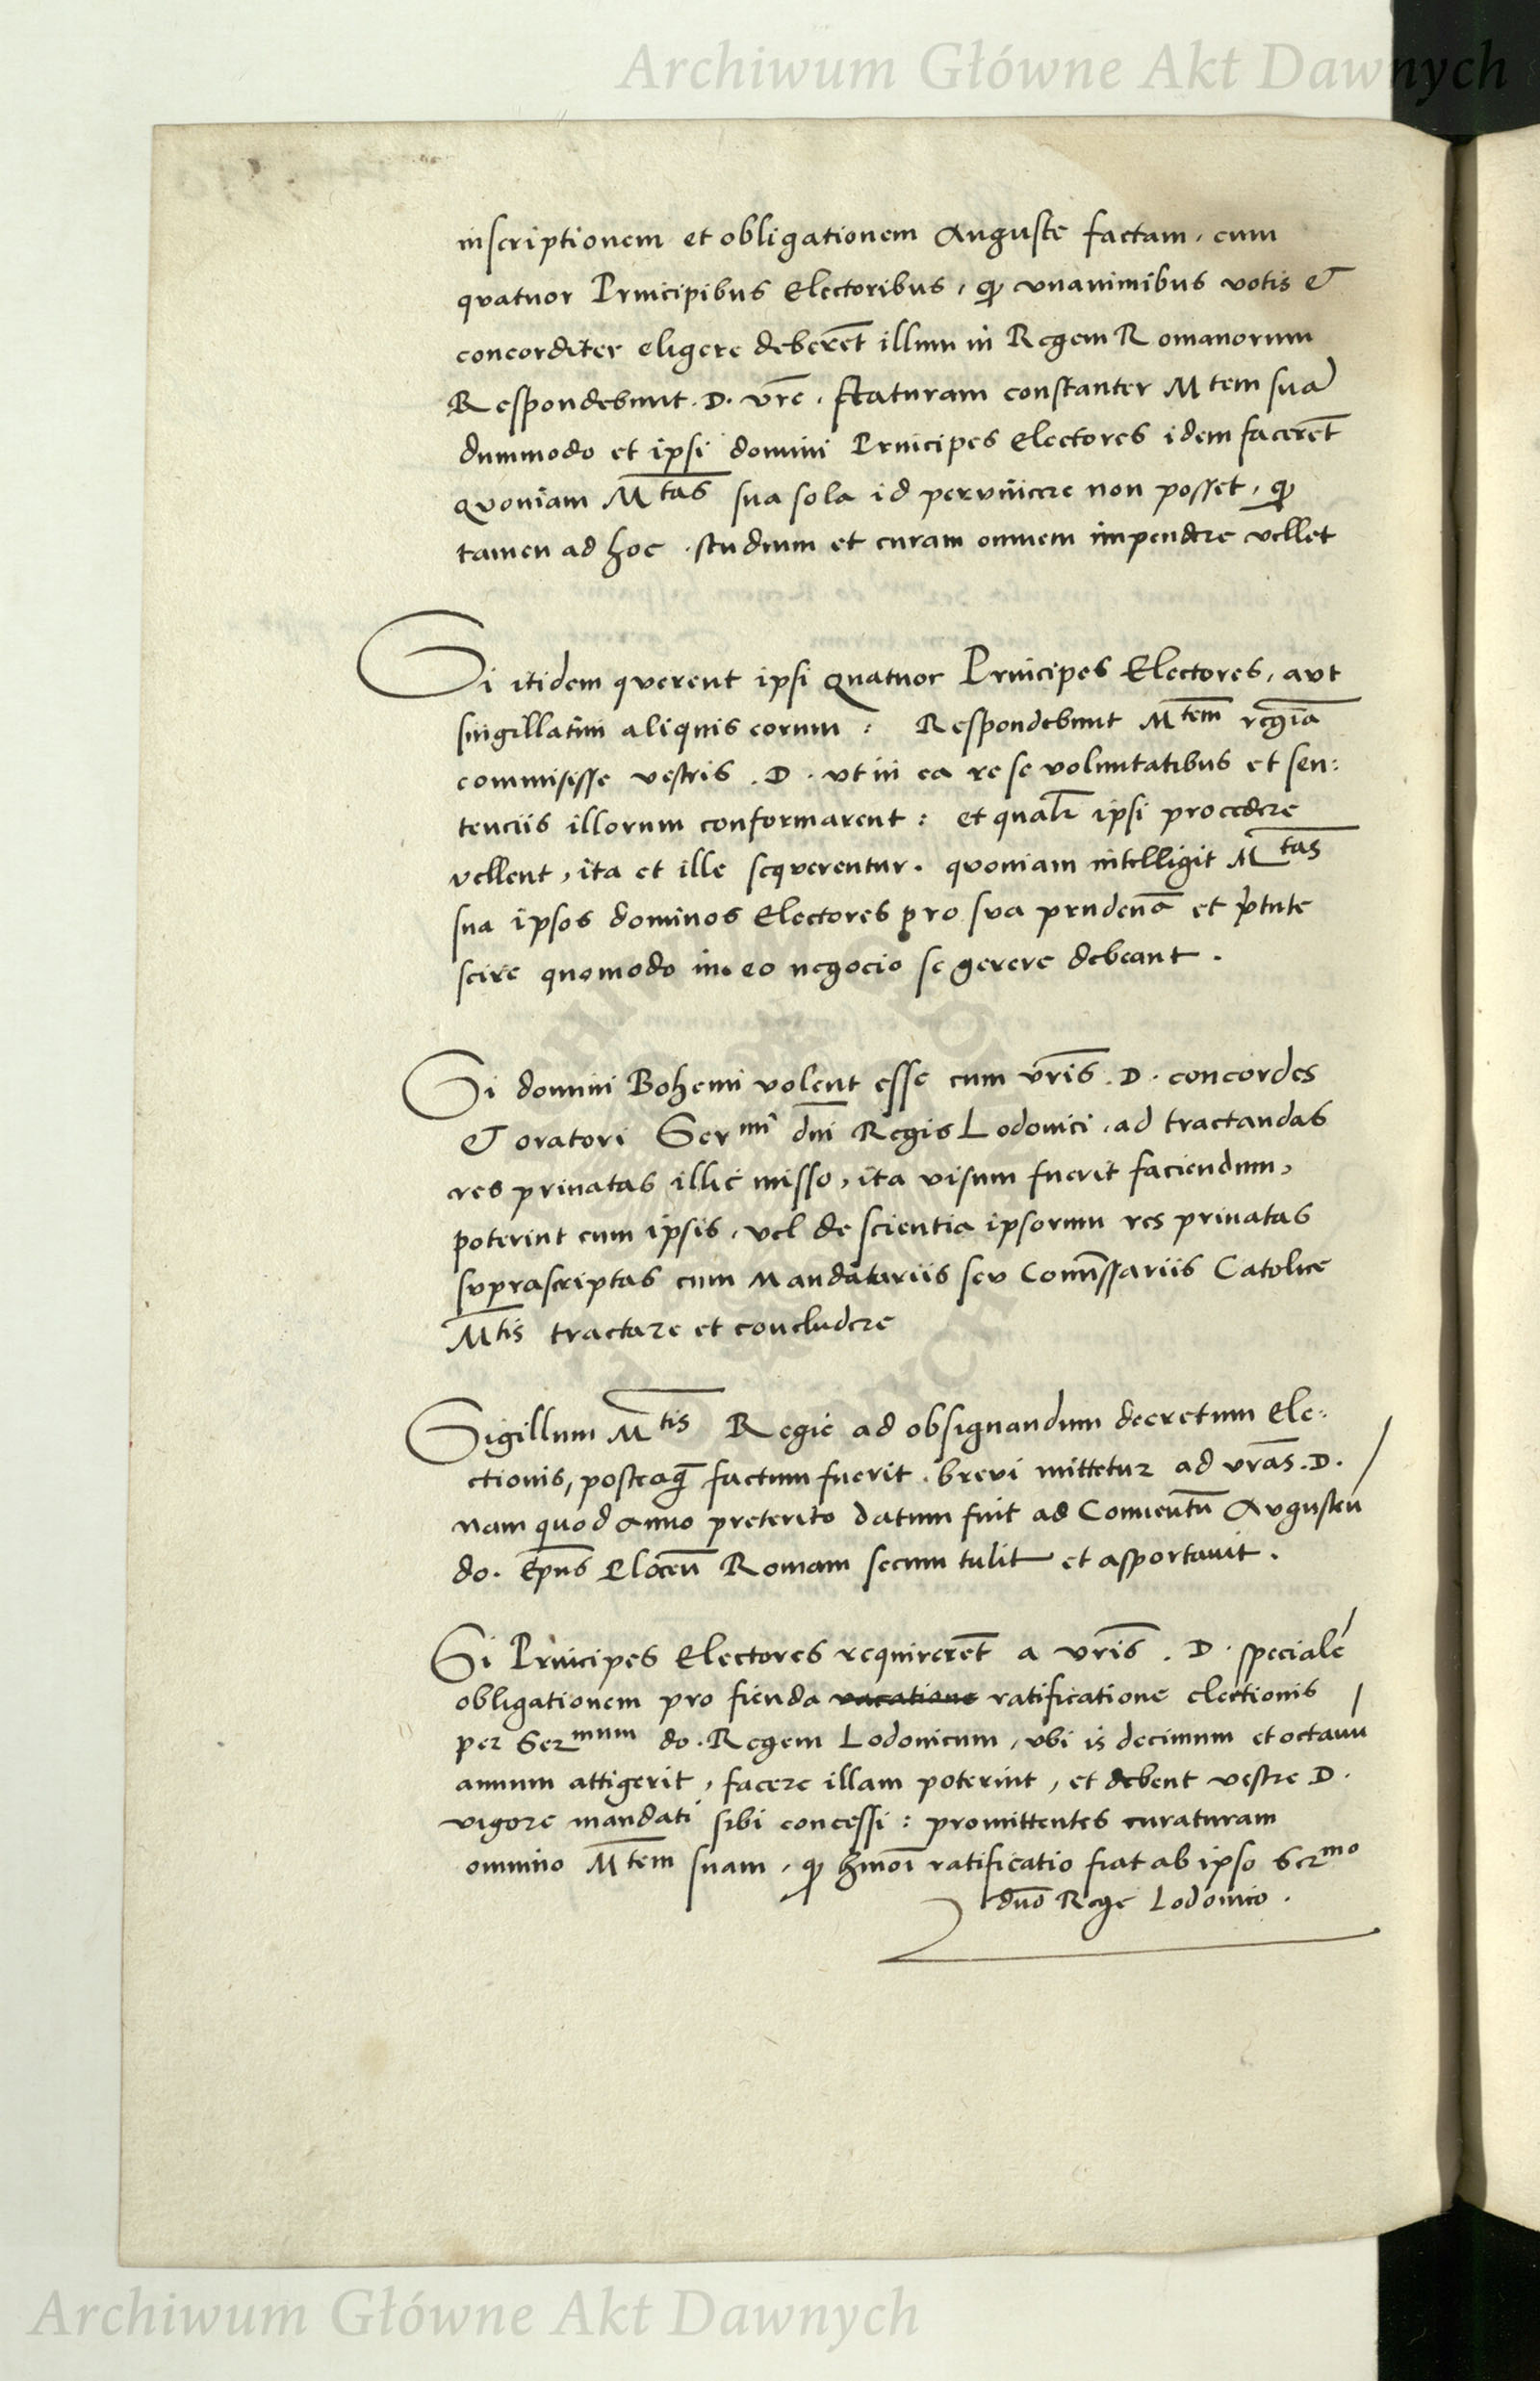 Archiwum Główne Akt Dawnych
inscriptionem et obligationem Auguste factam, cum
quatuor Principibus Electoribus, qď vnanimibus votis et
concorditer eligere deberēt illum in Regem Romanorum
Respondebunt. D. vr̄e. staturam constanter Mtem suā
dummodo et ipsi domini Principes Electores idem facerēt
quoniam Mtas sua sola id peruincere non posset, qď
tamen ad hoc studium et curam omnem impendere vellet
Si itidem querent ipsi quatuor Principes Electores, aut
singillatim aliquis eorum : Respondebunt Mtem regiā
commisisse vestris . D . vt in ea re se voluntatibus et sen:
tenciis illorum conformarent : et qualr̄ ipsi procedere
vellent, ita et ille sequerentur. quoniam intelligit Mtas
sua ipsos dominos Electores pro sua prudenā et v̓tute
scire quomodo in eo negocio se gerere debeant .
Si domini Bohemi volent esse cum vr̄is . D . concordes
et oratori Sermi dn̄i Regis Lodouici, ad tractandas
res priuatas illic misso, ita visum fuerit faciendum,
poterint cum ipsis, vel de scientia ipsorum res priuatas
suprascriptas cum Mandatariis seu Com̄issariis Catolice
Mtis tractare et concludere
Sigillum Mtis Regie ad obsignandum decretum Ele:
ctionis, posteaq̄ factum fuerit . breui mittetur ad vr̄as . D .
nam quod anno preterito datum fuit ad Conuentū Augusteñ
do. Ep̄us Ploceñ Romam secum tulit et asportauit .
Si Principes Electores requirerēt a vr̄is . D . specialē
obligationem pro fienda vacatione ratificatione electionis
per Sermum do. Regem Lodouicum, vbi is decimum et octauū
annum attigerit, facere illam poterint, et debent vestre D .
vigore mandati sibi concessi : promittentes curaturam
omnino Mtem suam, qď hm̄oi ratificatio fiat ab ipso Sermo
dn̄o Rege Lodouico .
Archiwum Główne Akt Dawnych